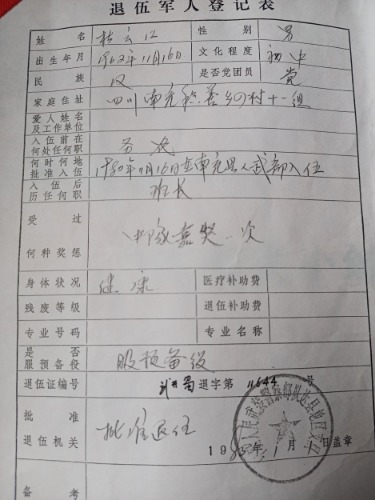 退伍军人登记表
姓名 性别 男
出生年月 1962年11月16日 文化程度 初中
民族 汉 是否党团员 党
家庭住址 四川南充 乡 村十一组
爱人姓名及工作单位
入伍前在何处任何职 务农
何时何地批准入伍 1980年11月16日在南充县人武部入伍
入伍后历任何职 班长
受过何种奖惩 嘉奖一次
身体状况 健康 医疗补助费
残废等级 退伍补助费
专业号码 专业名称
是否服预备役 服预备役
退伍证编号 退字第 号
批准退伍机关 批准退伍
198 年1月1日盖章
备考